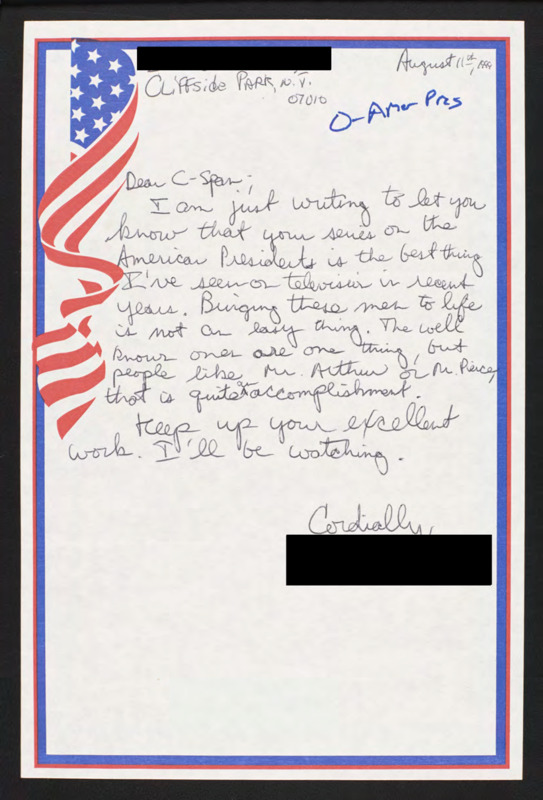 August 11th, 1999
Cliffside Park, N.J.
07010
O-Amer Pres
Dear C-Span;
I am just writing to let you
know that your series on the
American Presidents is the best thing
I've seen on television in recent
years. Bringing these men to life
is not an easy thing. The well
known ones are one thing, but
people like Mr. Arthur or Mr. Pierce,
that is quite an accomplishment.
Keep up your excellent
work. I'll be watching.
Cordially,